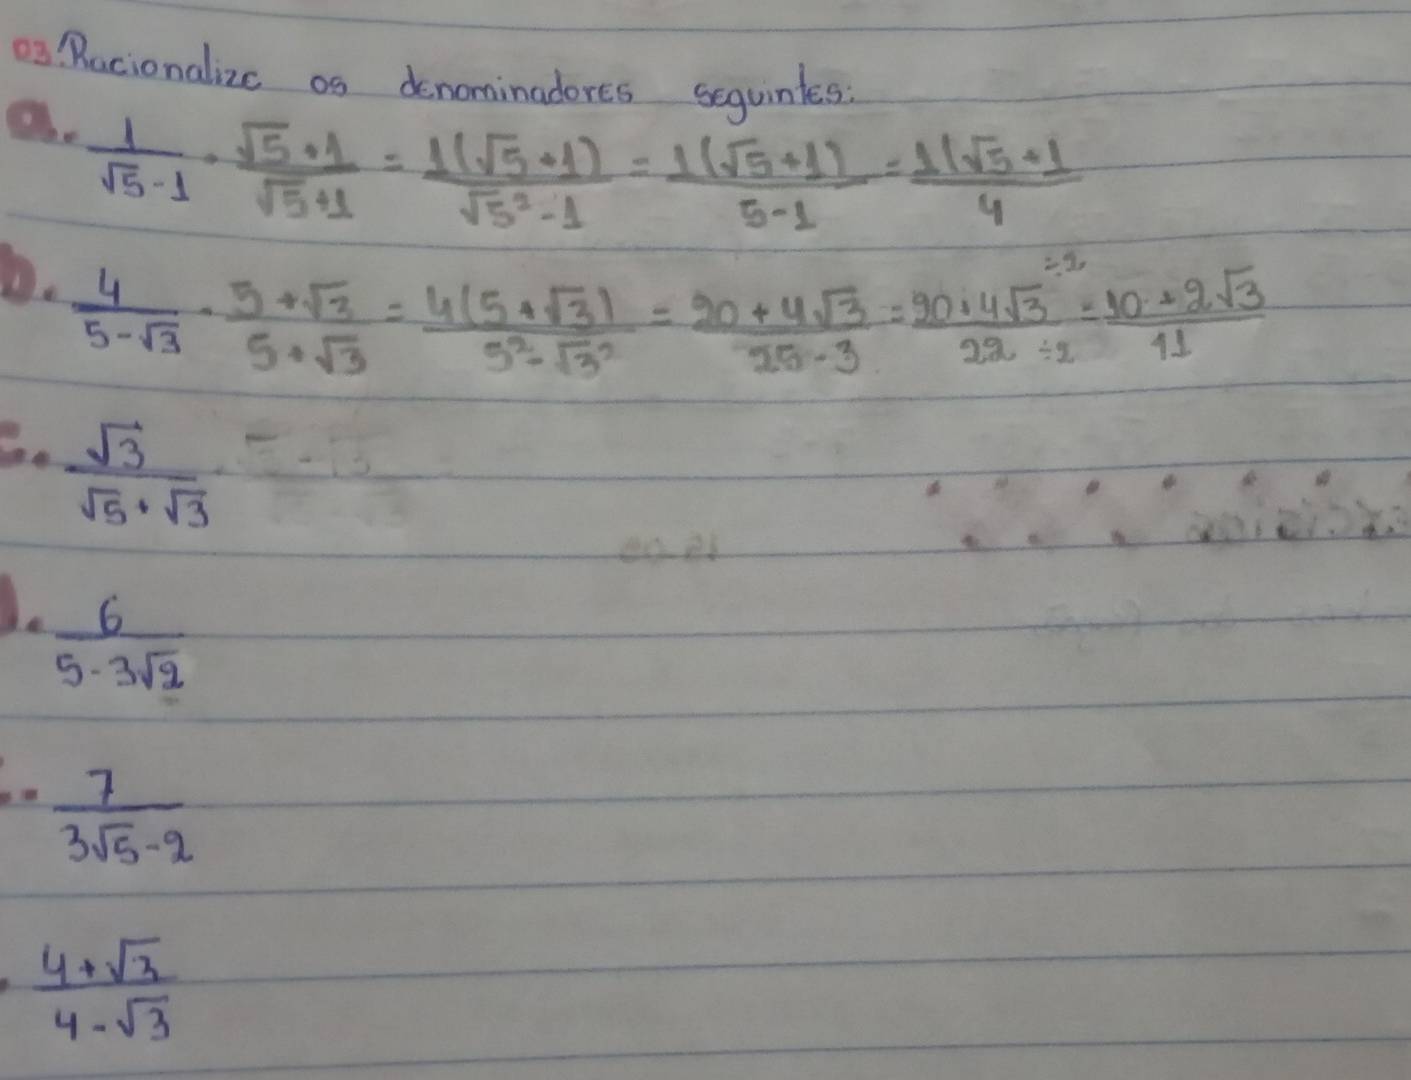 03. Racionalize os denominadores seguintes:
a. 1/(√5-1) · (√5+1)/(√5+1) = 1(√5+1)/(√5²-1) = 1(√5+1)/(5-1) = 1(√5+1/4
b. 4/(5-√3) · (5+√3)/(5+√3) = 4(5+√3)/(5²-√3²) = (20+4√3)/(25-3) = (20+4√3 ÷2)/(22 ÷2) = (10+2√3)/11
c. √3/(√5+√3)
d. 6/(5-3√2)
7/(3√5-2)
(4+√3)/(4-√3)